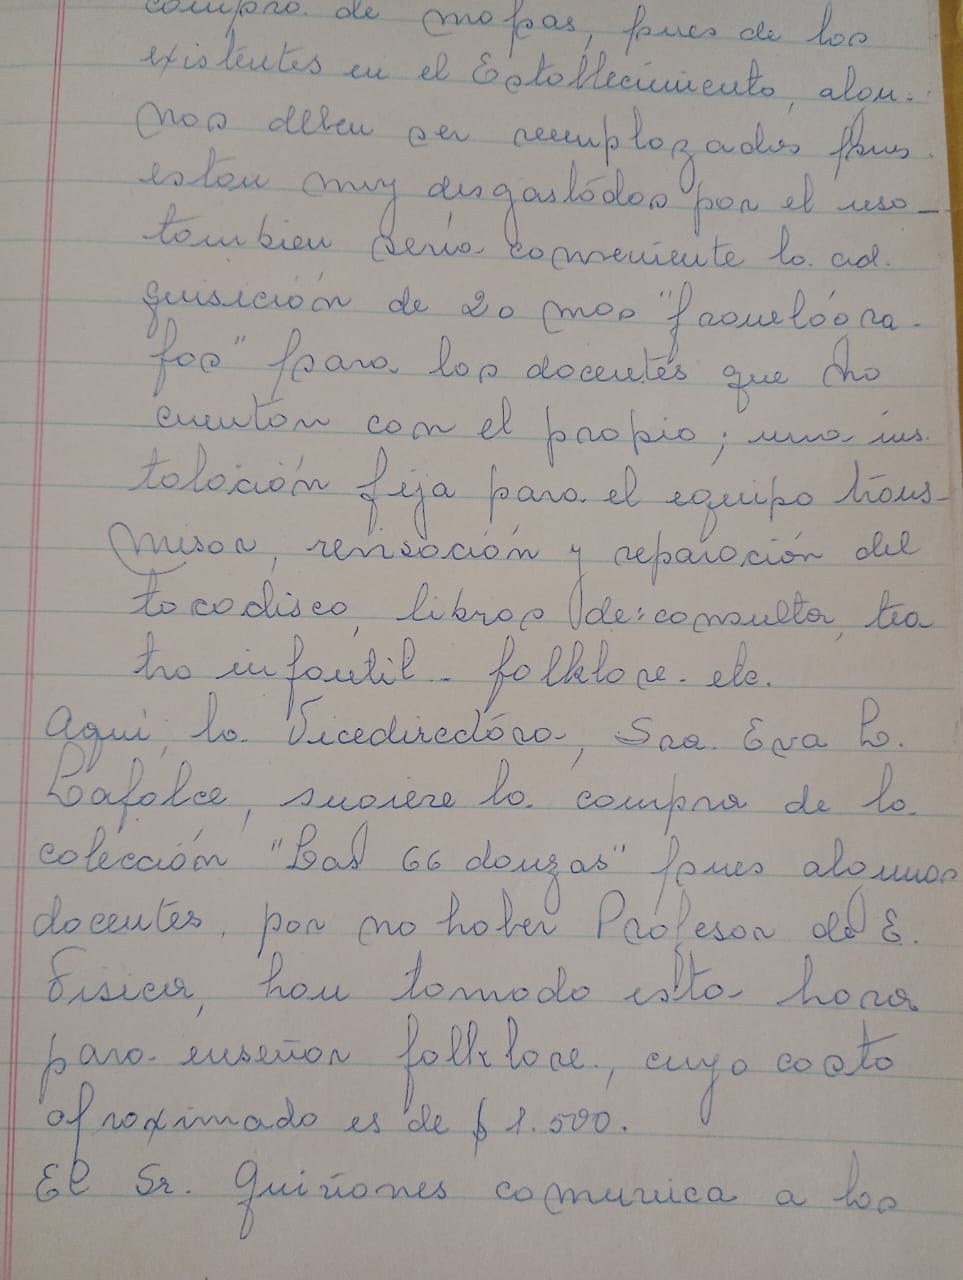 compra de mapas, pues de los
existentes en el Establecimiento, algu-
nos deben ser reemplazados pues
estan muy desgastados por el uso_
tambien seria conveniente la ad-
quisición de 2 o mas "franelógra-
fos" para los docentes que no
cuentan con el propio; una ins-
talación fija para el equipo trans-
misor, revisación y reparación del
tocadisco, libros de: consulta, tea
tro infantil - folklore - etc.
Aqui, la Vicedirectora, Sra. Eva L.
Lafolce, sugiere la compra de la
colección "Las 66 danzas" pues algunos
docentes, por no haber Profesor de E.
Fisica, han tomado esta hora
para enseñar folklore, cuyo costo
aproximado es de $ 1.500.
El Sr. Quiñones comunica a los